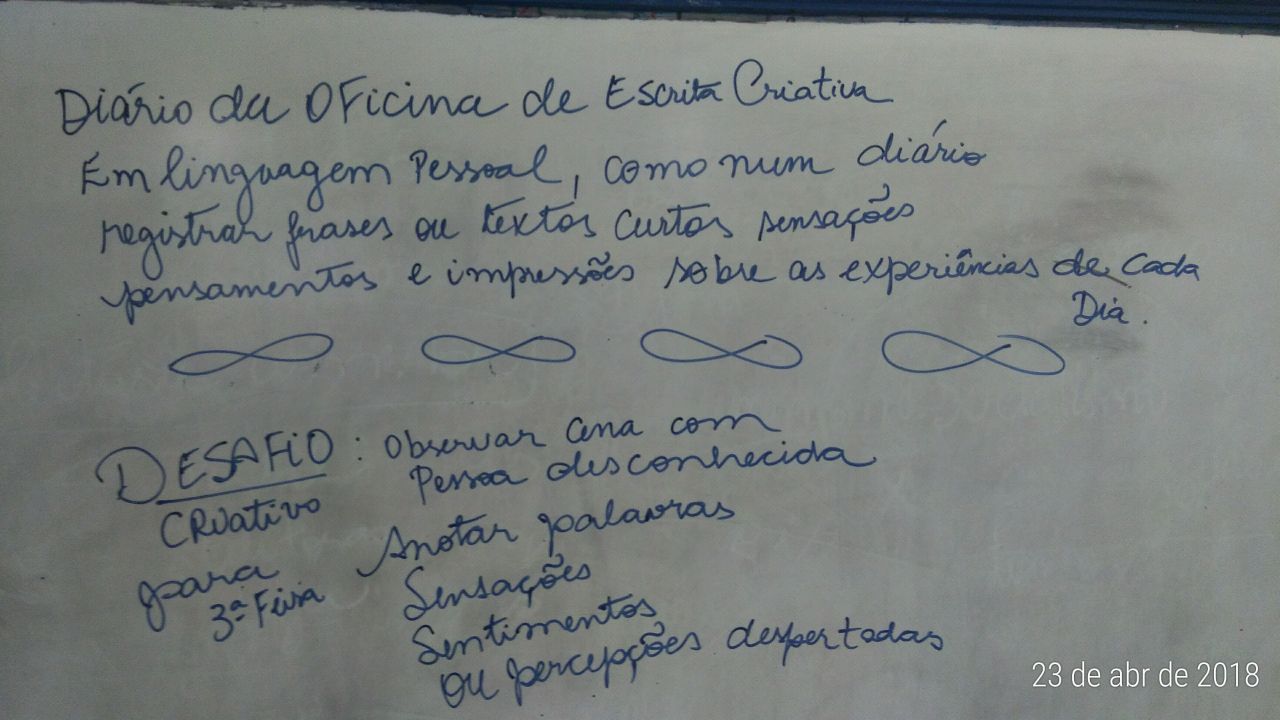 Diário da Oficina de Escrita Criativa
Em linguagem Pessoal, como num diário
registrar frases ou textos curtos sensações
pensamentos e impressões sobre as experiências de cada
Dia.
DESAFIO : Observar cena com
Pessoa desconhecida
Criativo
Anotar palavras
para
3ª Feira
Sensações
Sentimentos
ou percepções despertadas
23 de abr de 2018